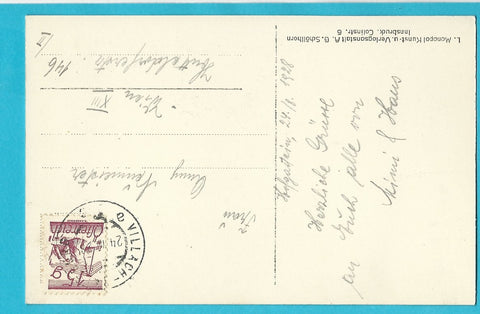 Hofgastein, 24./8. 1928
Herzliche Grüsse
an Euch alle von
Mimi & Hans
Frau
Anny Neumeister
Wien
XIII
Hütteldorferstr. 146
L. Monopol Kunst- u. Verlagsanstalt A. G. Schöllhorn
Innsbruck, Colinstr. 6
VILLACH
24
Österreich
15 g